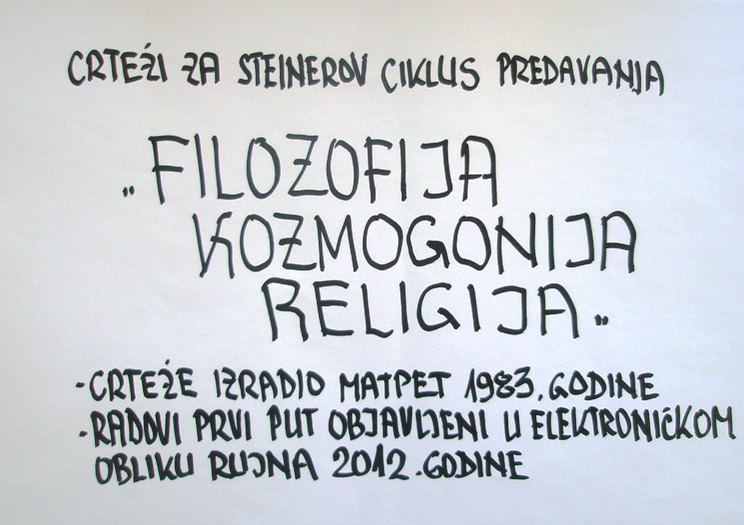 CRTEŽI ZA STEINEROV CIKLUS PREDAVANJA
„FILOZOFIJA
KOZMOGONIJA
RELIGIJA„
-CRTEŽE IZRADIO MATPET 1983. GODINE
-RADOVI PRVI PUT OBJAVLJENI U ELEKTRONIČKOM
OBLIKU RUJNA 2012. GODINE